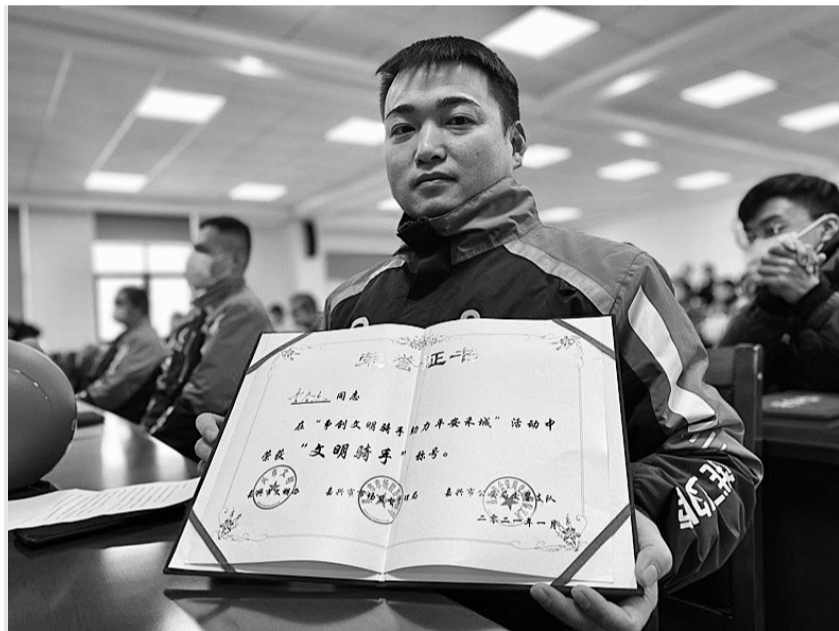 荣誉证书
同志
在“争创文明骑手助力平安禾城”活动中
荣获“文明骑手”称号。
嘉兴市文明办 嘉兴市市场监督管理局 嘉兴市公安局交警支队
二〇二一年一月